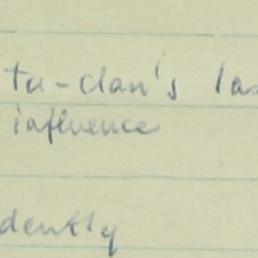 ta-clan's las
influence
dently